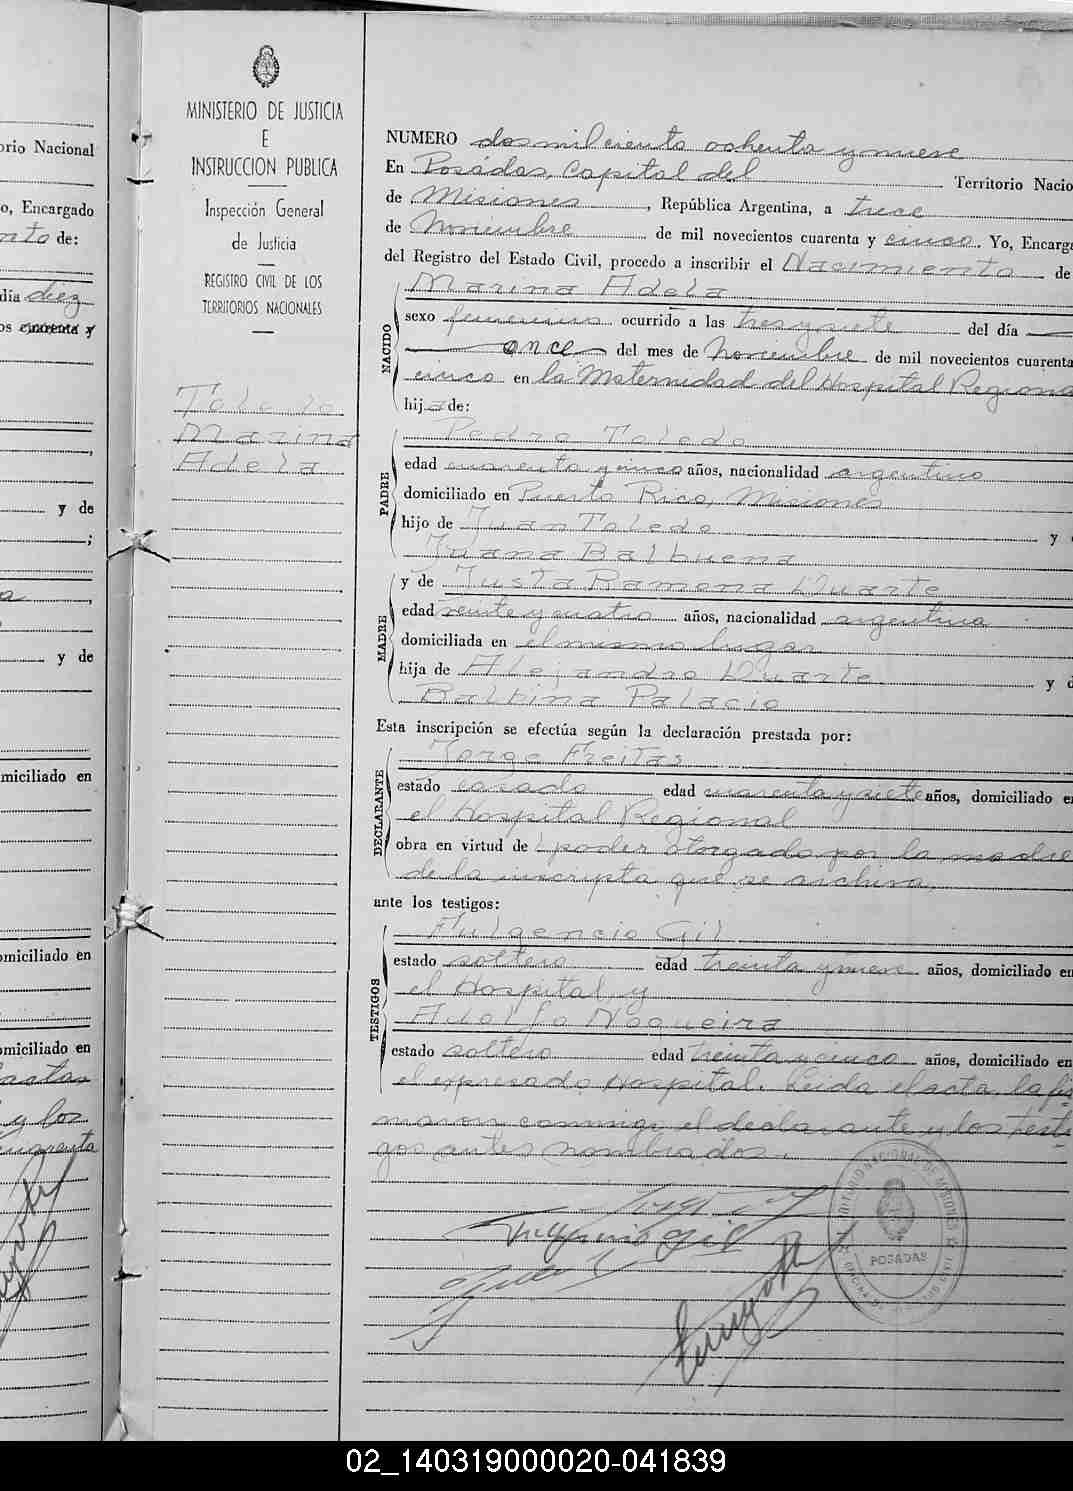 MINISTERIO DE JUSTICIA
E
INSTRUCCION PUBLICA
Inspección General
de Justicia
REGISTRO CIVIL DE LOS
TERRITORIOS NACIONALES
Toledo
Marina
Adela
orio Nacional
o, Encargado
nto de:
día diez
os cuarenta y
y de
;
a
y de
miciliado en
omiciliado en
omiciliado en
acta
y los
cuarenta
NUMERO dos mil ciento ochenta y nueve
En Posadas, Capital del Territorio Nacio
de Misiones, República Argentina, a trece
de Noviembre de mil novecientos cuarenta y cinco. Yo, Encarga
del Registro del Estado Civil, procedo a inscribir el Nacimiento de
NACIDO
Marina Adela
sexo femenino ocurrido a las tres y siete del día
once del mes de Noviembre de mil novecientos cuarenta
cinco en la Maternidad del Hospital Regiona
hija de:
PADRE
Pedro Toledo
edad cuarenta y cinco años, nacionalidad argentino
domiciliado en Puerto Rico, Misiones
hijo de Juan Toledo y
Juana Balbuena
MADRE
y de Justa Ramona Duarte
edad veinte y cuatro años, nacionalidad argentina
domiciliada en el mismo lugar
hija de Alejandro Duarte y d
Balbina Palacio
Esta inscripción se efectúa según la declaración prestada por:
DECLARANTE
Jorge Freitas
estado casado edad cuarenta y siete años, domiciliado en
el Hospital Regional
obra en virtud de poder otorgado por la madre
de la inscripta que se archiva.
ante los testigos:
TESTIGOS
Fulgencio Gil
estado soltero edad treinta y nueve años, domiciliado en
el Hospital, y
Adolfo Nogueira
estado soltero edad treinta y cinco años, domiciliado en
el expresado Hospital. Leida el acta, la fir-
maron conmigo el declarante y los testi-
gos antes nombrados.
Fulgencio Gil
TERRITORIO NACIONAL DE MISIONES
POSADAS
02_140319000020-041839